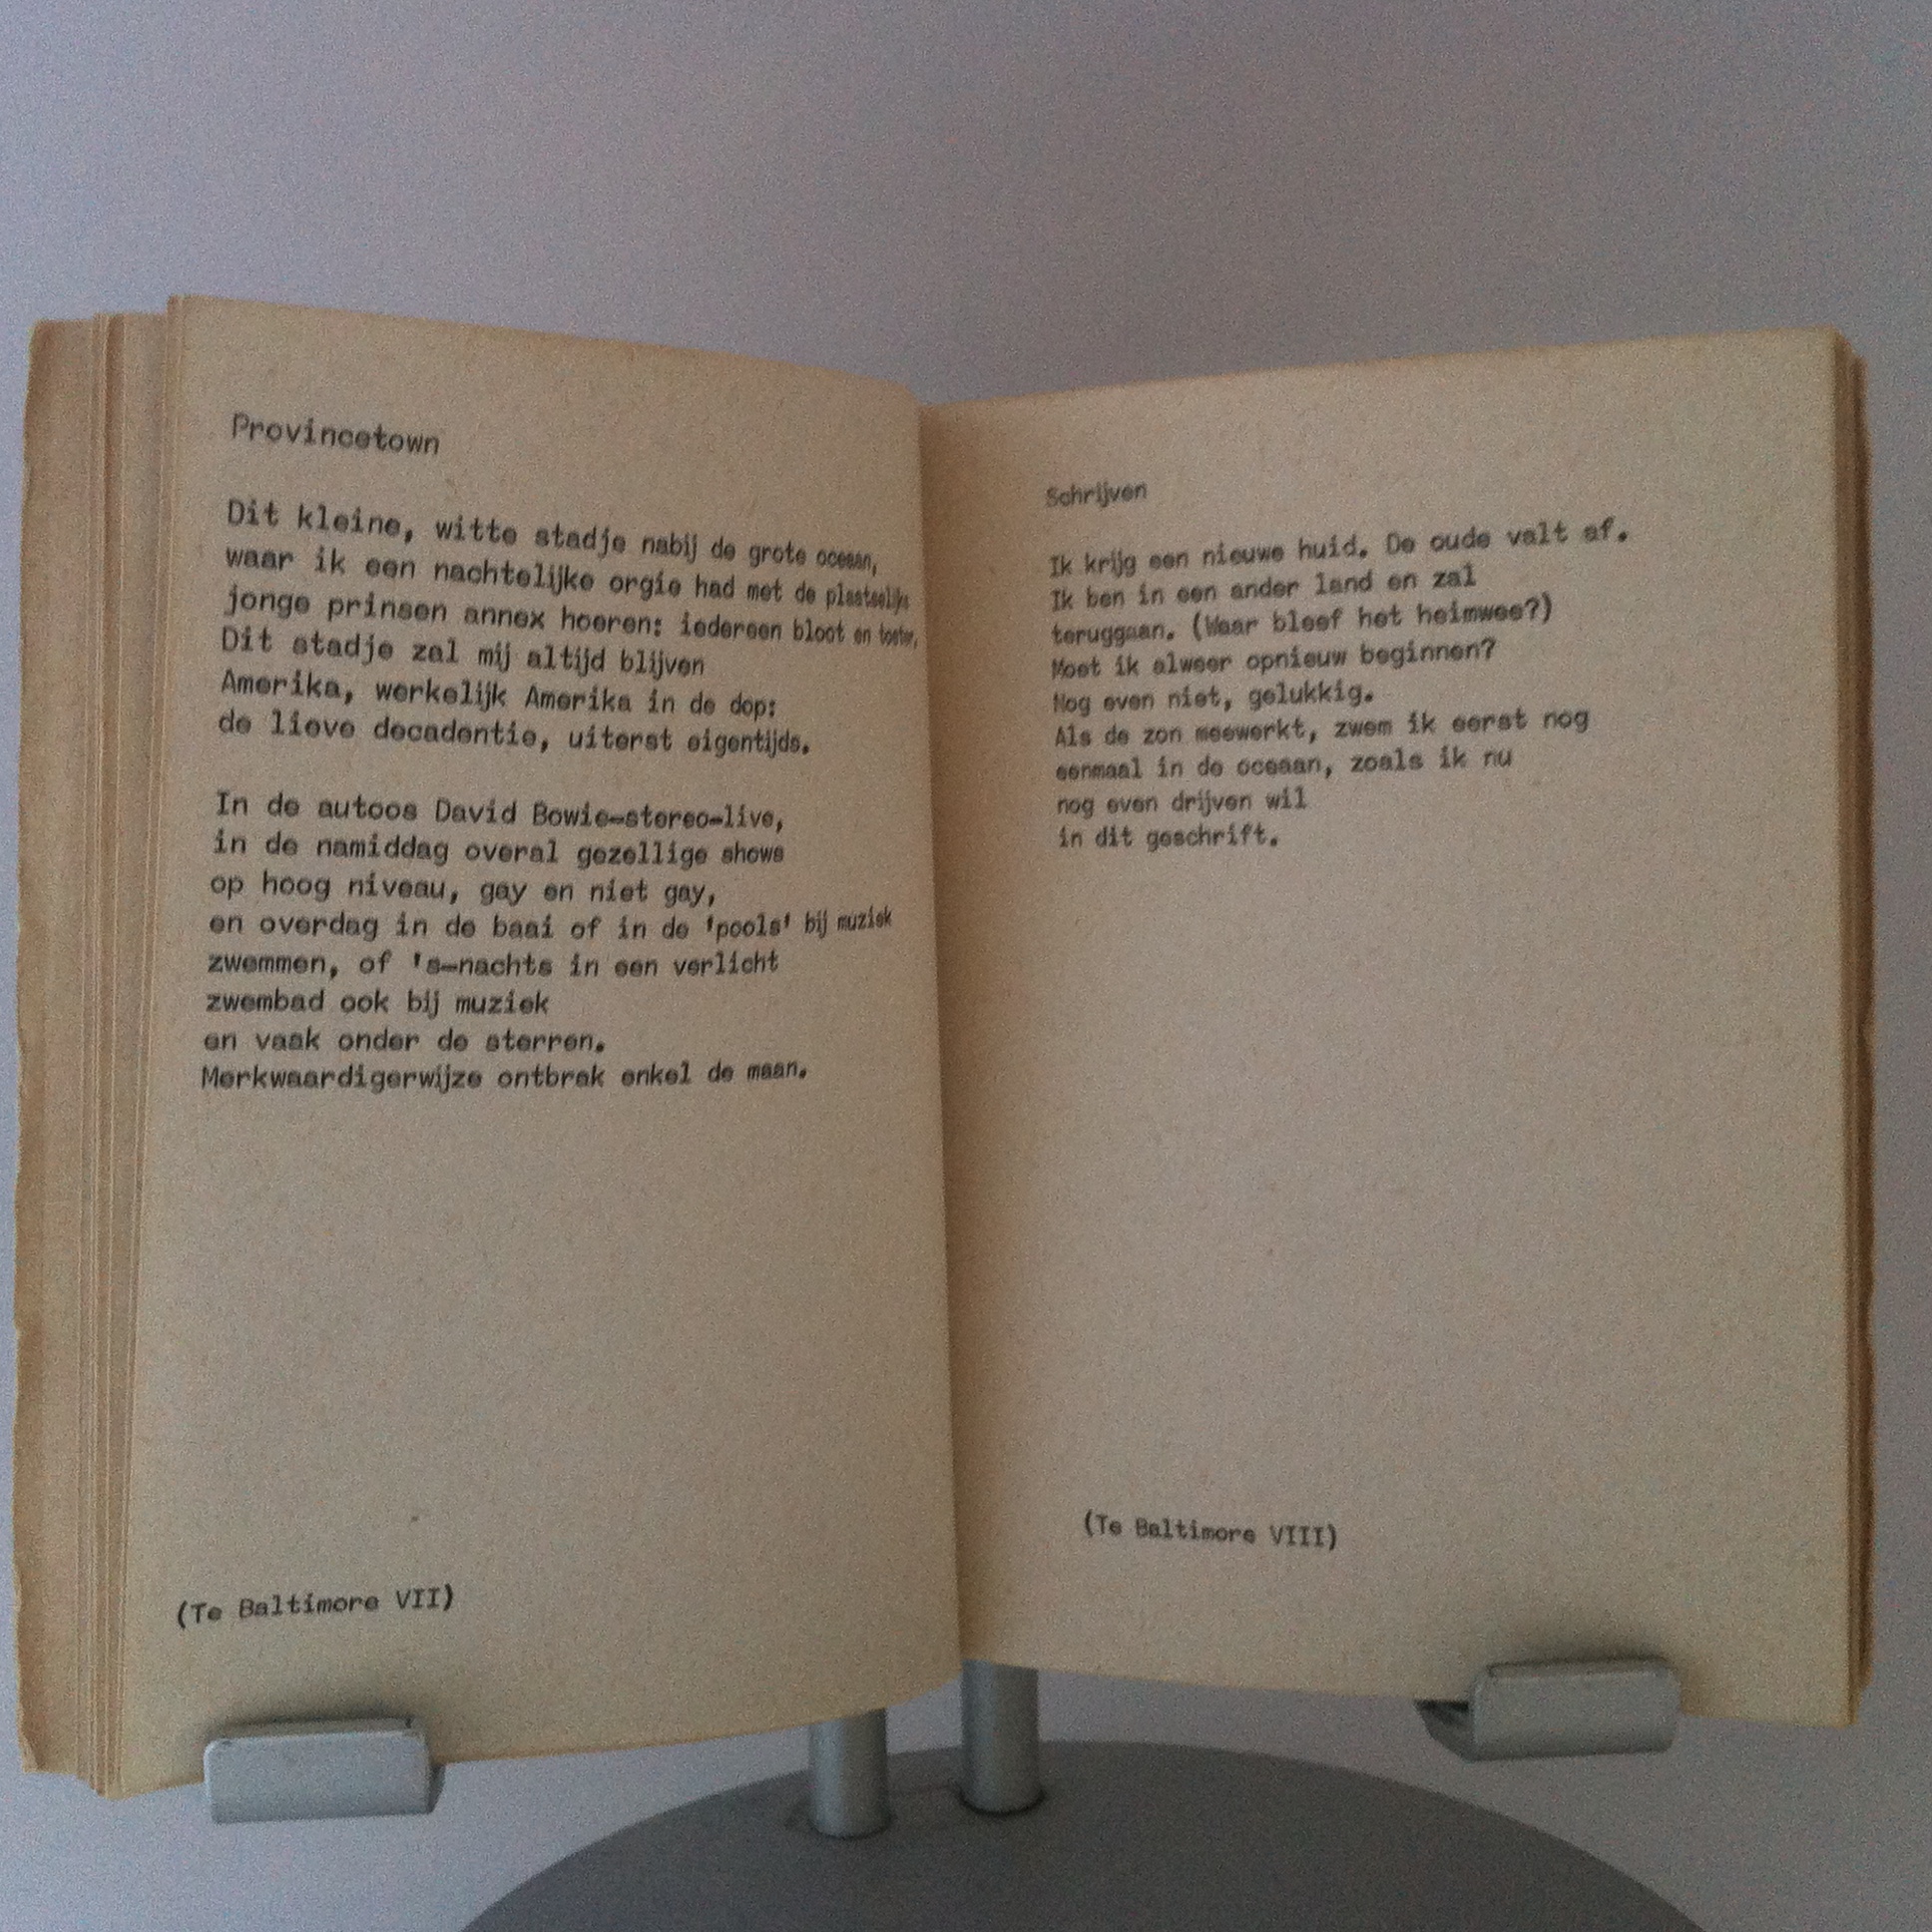 Provincetown
Dit kleine, witte stadje nabij de grote oceaan,
waar ik een nachtelijke orgie had met de plaatselijke
jonge prinsen annex hoeren: iedereen bloot en
Dit stadje zal mij altijd blijven
Amerika, werkelijk Amerika in de dop:
de lieve decadentie, uiterst eigentijds.
In de autoos David Bowie-stereo-live,
in de namiddag overal gezellige shows
op hoog niveau, gay en niet gay,
en overdag in de baai of in de 'pools' bij muziek
zwemmen, of 's-nachts in een verlicht
zwembad ook bij muziek
en vaak onder de sterren.
Merkwaardigerwijze ontbrak enkel de maan.
(Te Baltimore VII)
Schrijven
Ik krijg een nieuwe huid. De oude valt af.
Ik ben in een ander land en zal
teruggaan. (Waar bleef het heimwee?)
Moet ik alweer opnieuw beginnen?
Nog even niet, gelukkig.
Als de zon meewerkt, zwem ik eerst nog
eenmaal in de oceaan, zoals ik nu
nog even drijven wil
in dit geschrift.
(Te Baltimore VIII)